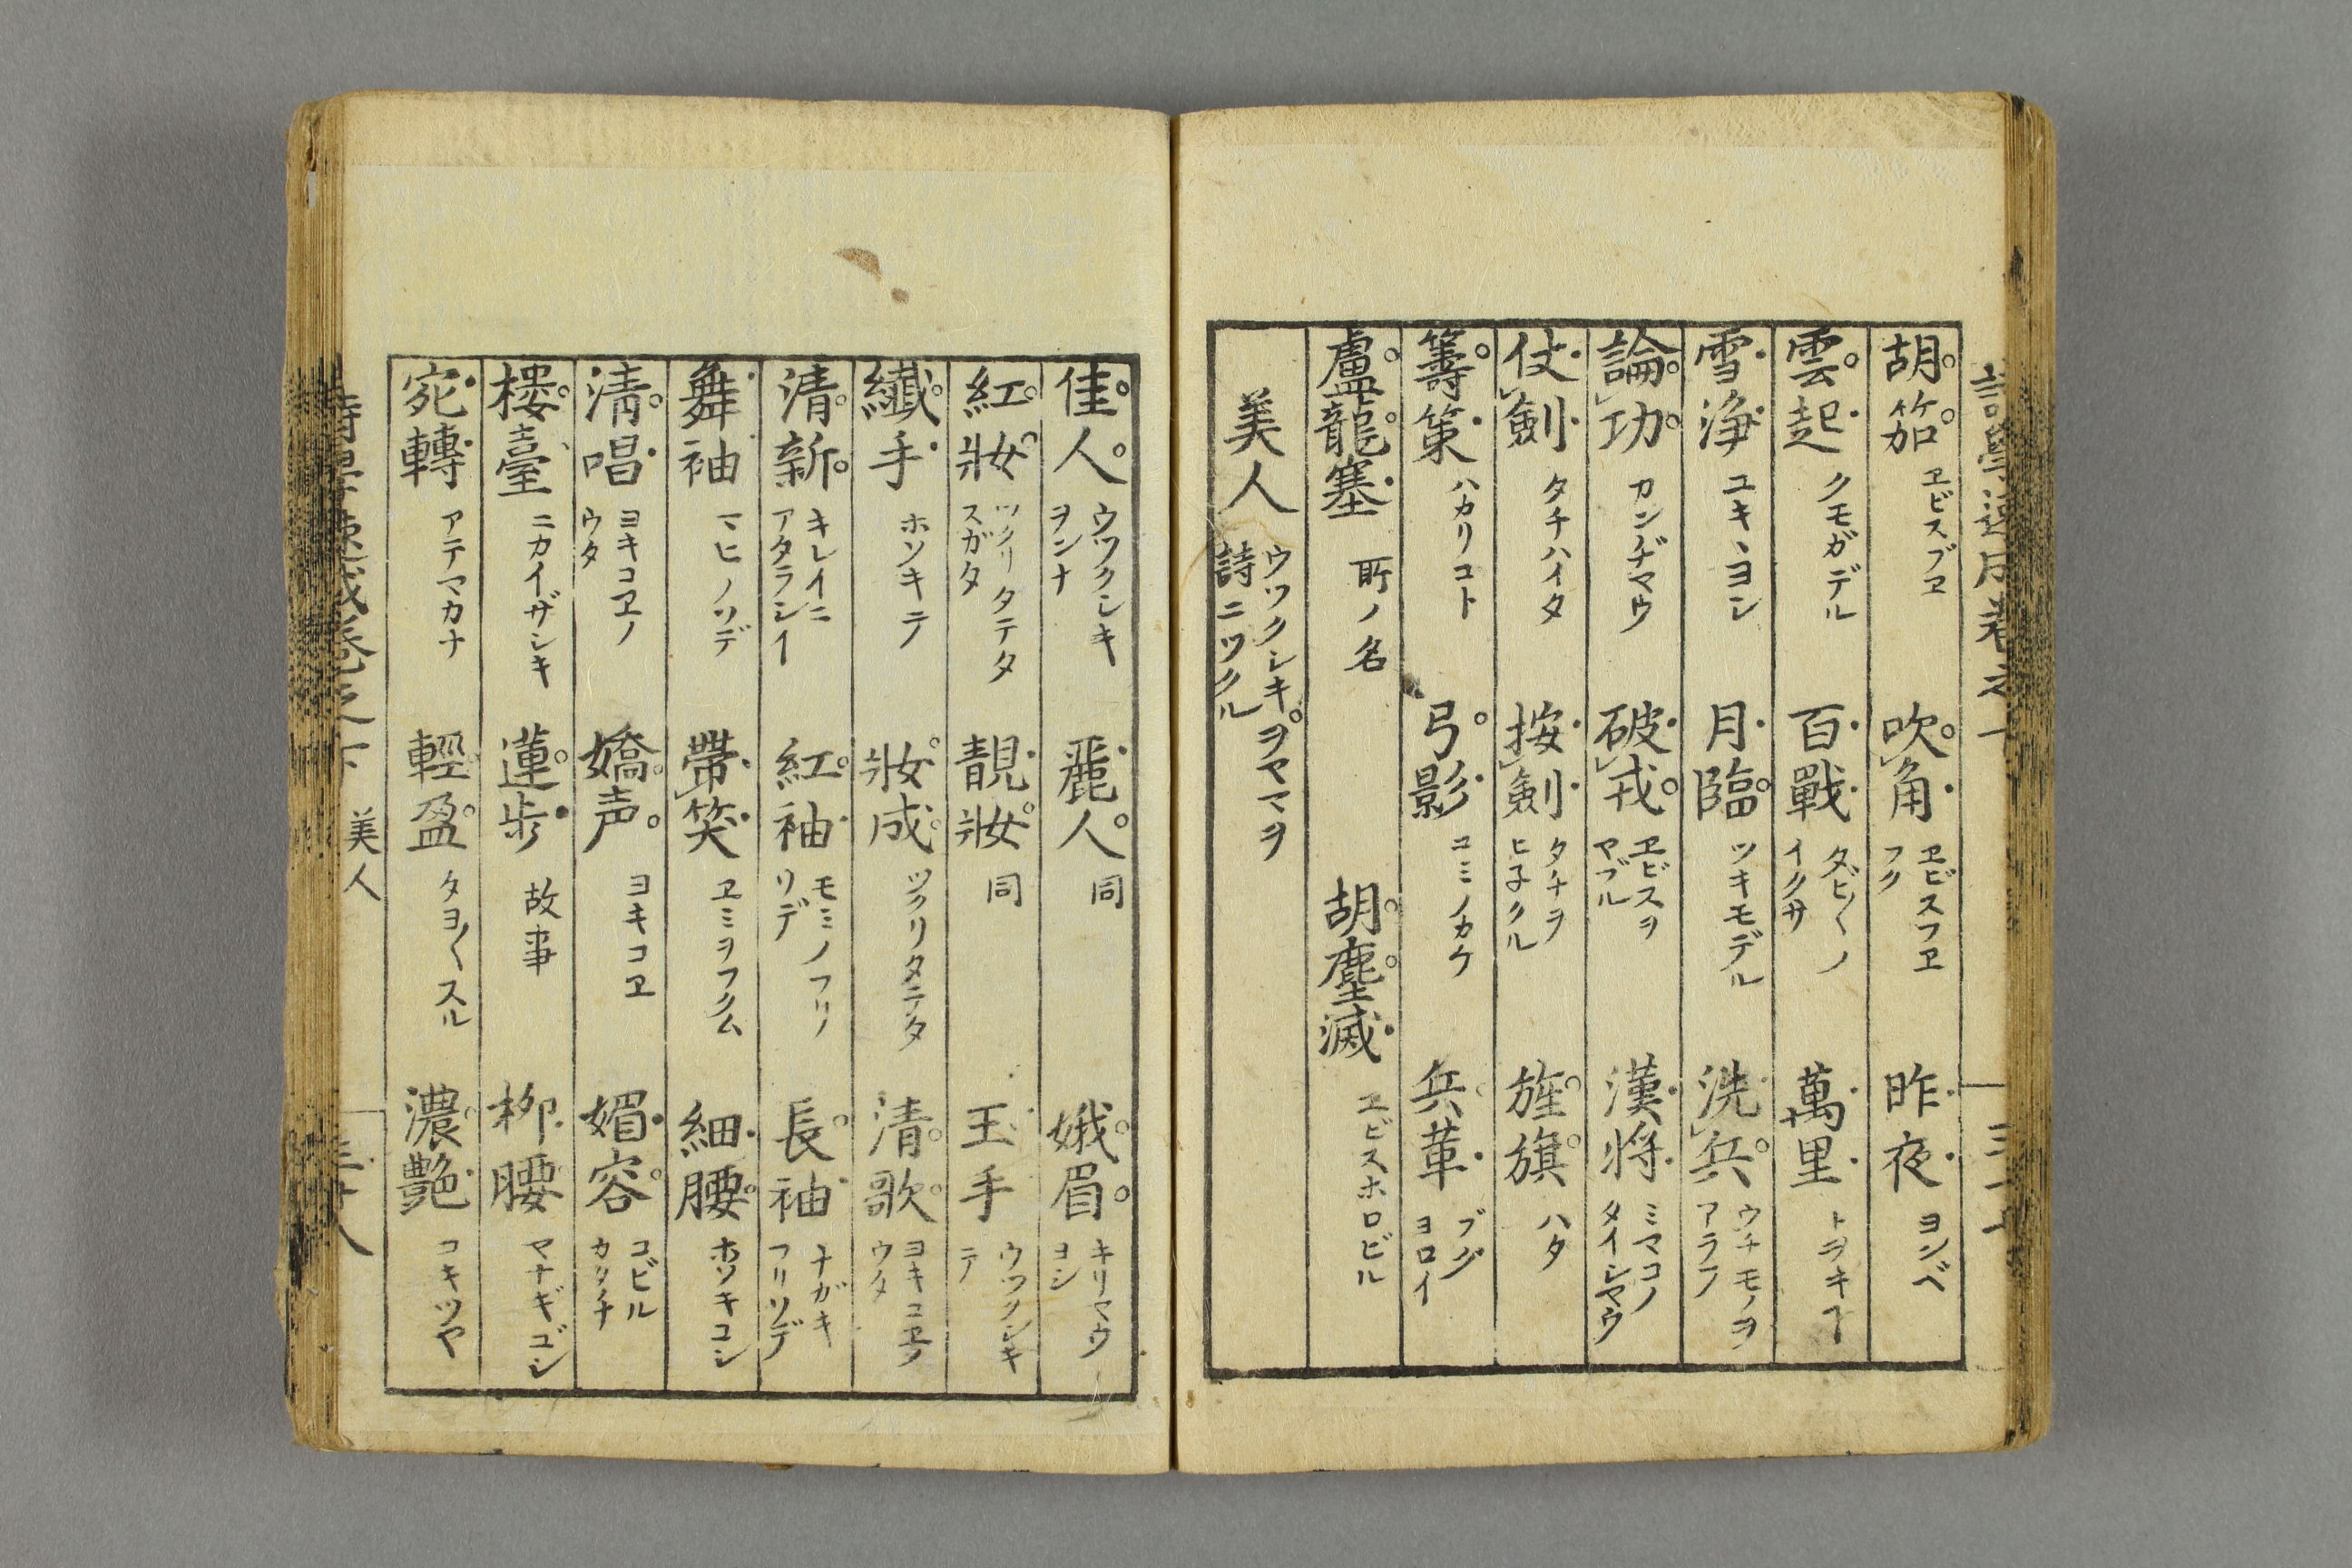 胡笳 ヱビスブヱ 吹角 ヱビスフヱフク 昨夜 ヨンベ
雲起 クモガデル 百戰 タビ〱ノイクサ 萬里 トヲキヿ
雪浄 ユキヽヨシ 月臨 ツキモデル 洗兵 ウチモノヲアラフ
論功 カンヂマウ 破戎 ヱビスヲヤブル 漢将 ミマコノタイシヤウ
仗劍 タチハイタ 按劍 タチヲヒネクル 旌旗 ハタ
籌策 ハカリコト 弓影 ユミノカケ 兵革 ブグヨロイ
盧龍塞 所ノ名 胡塵滅 ヱビスホロビル
美人 ウツクシキヲヤマヲ詩ニツクル
佳人 ウツクシキヲンナ 麗人 同 娥眉 キリマウヨシ
紅妝 ツクリタテタスガタ 靚妝 同 玉手 ウツクシキテ
纎手 ホソキテ 妝成 ツクリタテタ 清歌 ヨキコヱノウタ
清新 キレイニアタラシイ 紅袖 モミノフリソデ 長袖 ナガキフリソデ
舞袖 マヒノソデ 帶笑 ヱミヲフクム 細腰 ホソキコシ
清唱 ヨキコヱノウタ 嬌声 ヨキコヱ 媚容 コビルカタチ
楼臺 ニカイザシキ 蓮步 故事 柳腰 ヤナギゴシ
宛轉 アテマカナ 輕盈 タヨ〱スル 濃艶 コキツヤ
詩學速成卷之下 美人